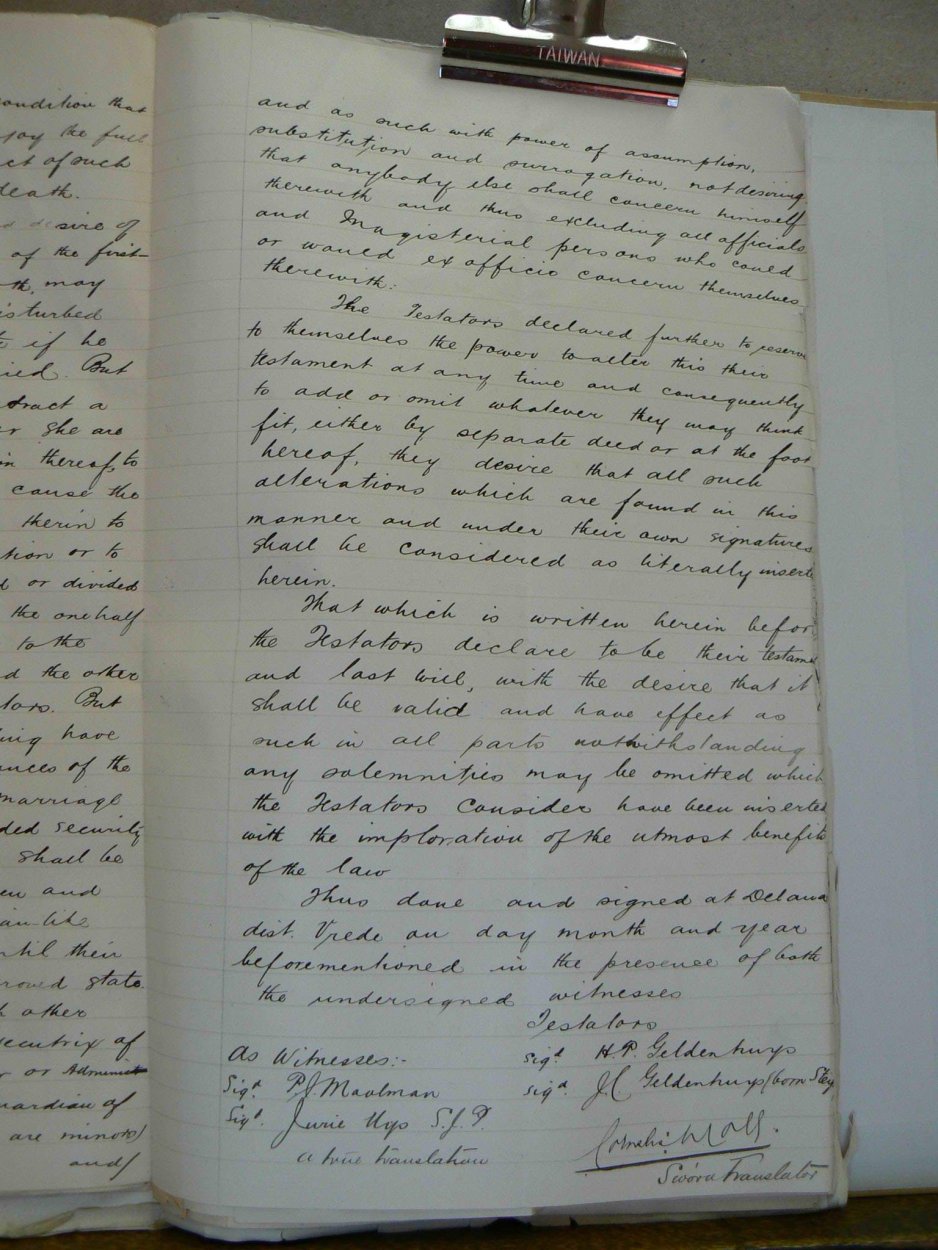 TAIWAN
condition that
joy the full
ct of such
death.
desire of
of the first-
th, may
isturbed
if he
ried. But
tract a
or she are
in thereof, to
cause the
therin to
tion or to
d or divided
the one half
to the
d the other
tors. But
ing have
ances of the
marriage
ded security
shall be
en and
an like
ntil their
roved state
h other
ecutrix of
r or Administ
uardian of
are minors)
and/
and as such with power of assumption,
substitution and surrogation, not desiring
that anybody else shall concern himself
therewith and thus excluding all officials
and Magisterial persons who could
or would ex officio concern themselves
therewith:
The Testators declared further to reserve
to themselves the power to alter this their
testament at any time and consequently
to add or omit whatever they may think
fit, either by separate deed or at the foot
hereof, they desire that all such
alterations which are found in this
manner and under their own signatures
shall be considered as literally insert
herein.
That which is written herein before
the Testators declare to be their testame
and last will, with the desire that it
shall be valid and have effect as
such in all parts notwithstanding
any solemnities may be omitted which
the Testators consider have been inserted
with the imploration of the utmost benefits
of the law
Thus done and signed at Delawa
dist. Vrede on day month and year
beforementioned in the presence of both
the undersigned witnesses
Testators
As Witnesses:-
sigd H.P. Geldenhuys
Sigd P.J. Maalman
sigd J.C. Geldenhuys (born Stey
Sigd Jurie Uys S.J.P.
a true translation
Cornelis Moll.
Sworn Translator